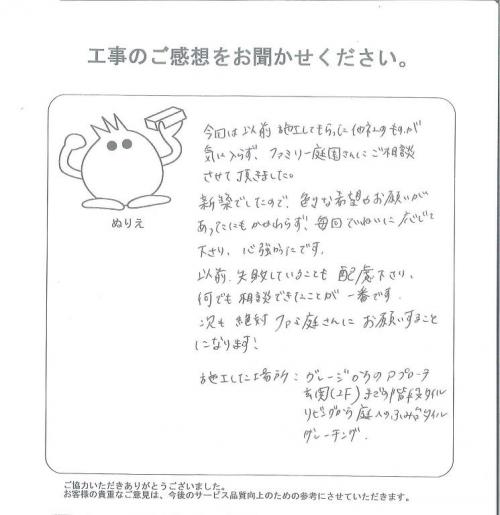 工事のご感想をお聞かせください。
ぬりえ
今回は以前施工してもらった他社のものが
気に入らず、ファミリー庭園さんにご相談
させて頂きました。
新築でしたので、色々な希望やお願いが
あったにもかかわらず、毎回ていねいに応じて
下さり、心強かたです。
以前、失敗していることも配慮下さり、
何でも相談できたことが一番です。
次も絶対ファミ庭さんにお願いすること
になります!
施工した場所：ガレージからのアプローチ
玄関(2F)までの階段タイル
リビングから庭へのふみ台タイル
グレーチング.
ご協力いただきありがとうございました。
お客様の貴重なご意見は、今後のサービス品質向上のための参考にさせていただきます。